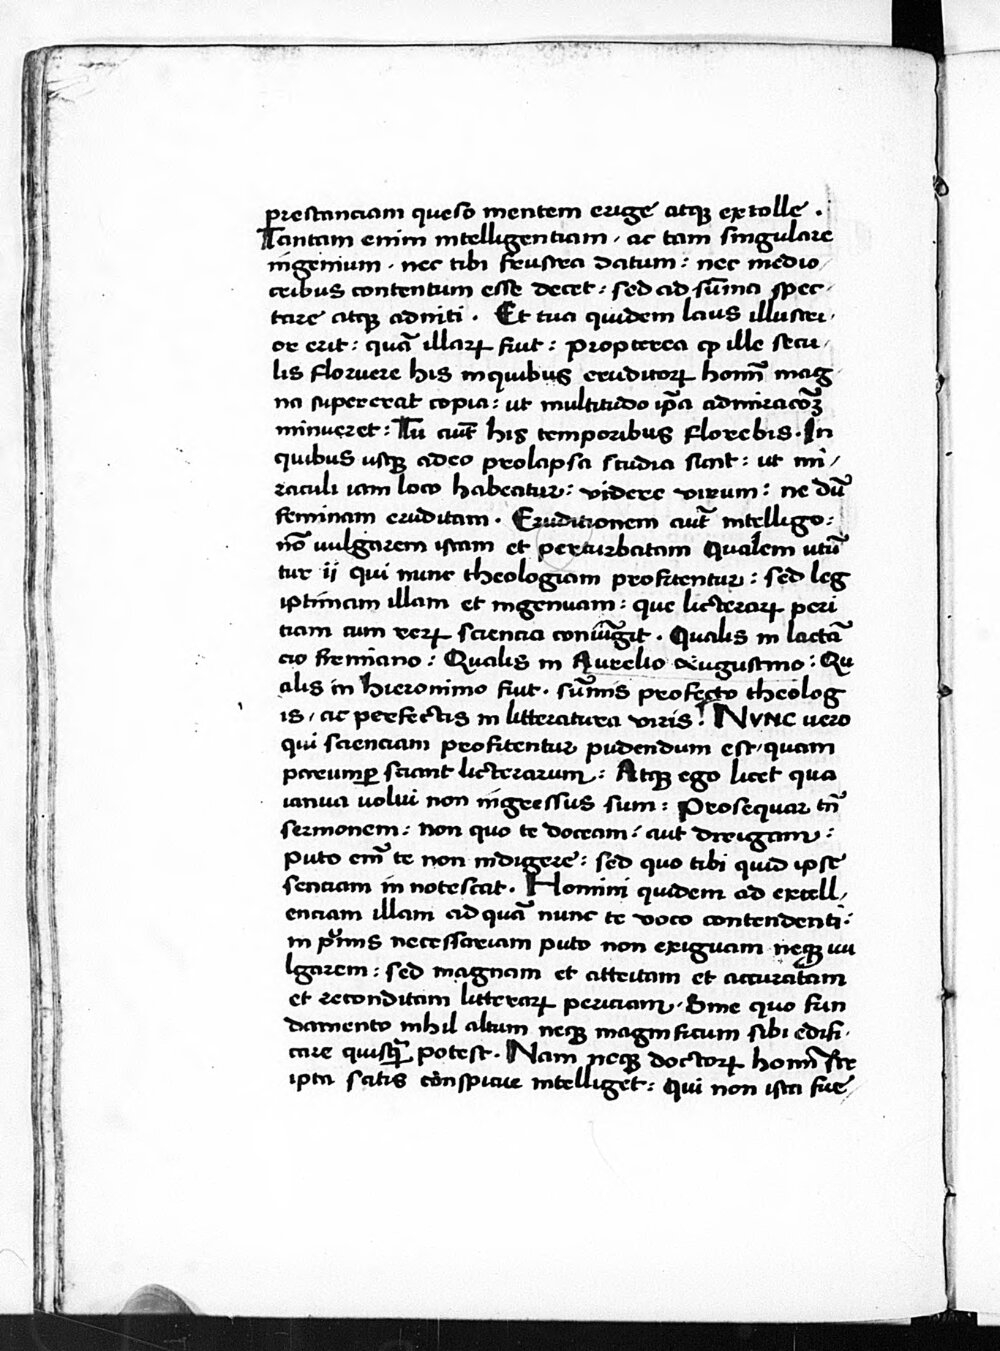 prestanciam queso mentem erige atqꝫ extolle .
Tantam enim intelligentiam , ac tam singulare
ingenium . nec tibi frustra datum : nec medio
cribus contentum esse decet : sed ad sūma spec-
tare atqꝫ adniti . Et tua quidem laus illustri ,
or erit : quā illaꝝ fuit : Propterea ꝙ ille secu ,
lis floruere his in quibus eruditoꝝ homī̄ mag
na supererat copia : ut multitudo ip̄a admiracōꝫ
minueret : Tu aut̄ his temporibus florebis . In
quibus usqꝫ adeo prolapsa studia sunt : ut mi /
raculi iam loco habeatur : videre virum : ne dū
feminam eruditam . Eruditionem aut̄ intelligo :
nō uulgarem istam et perturbatam Qualem utū
tur ii qui nunc theologiam profitentur : sed leg
iptimam illam et ingenuam : que licteraꝝ peri
tiam cum reꝝ sciencia coniūgit . Qualis in lactā
cio firmiano : Qualis in Aurelio Augustino : Qu
alis in hieronimo fuit . sūmis profecto theolog
is , ac perfectis in litteratura viris ! NVNC uero
qui scienciam profitentur pudendum est , quam
parumꝑ sciant licterarum : Atqꝫ ego licet qua
ianua uolui non ingressus sum : Prosequar tn̄
sermonem : non quo te doceam : aut dirigam :
puto em̄ te non indigere : sed quo tibi quid ipse
senciam in notescat . Homini quidem ad excell ,
enciam illam ad quā nunc te voco contendenti :
in p̄mis necessariam puto non exiguam neqꝫ uu
lgarem : sed magnam et attritam et accuratam
et reconditam litteraꝝ periciam . Sine quo fun
damento nihil altum neqꝫ magnificum sibi edifi .
care quisqꝫ̄ potest . Nam neqꝫ doctoꝝ homī̄ scr
ipta satis conspicue intelliget : Qui non ista fue